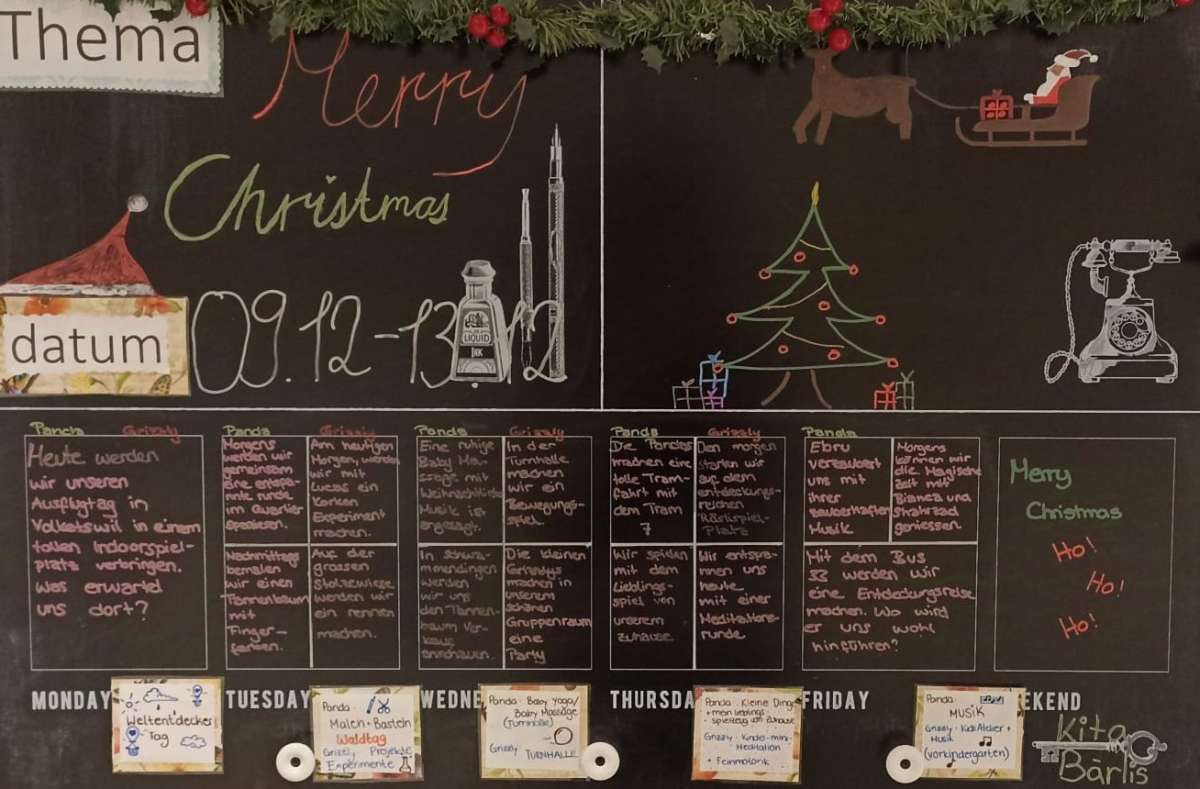 Thema
Merry
Christmas
datum
09.12-13.12
LIQUID
INK
Panda Grizzly
Heute werden
wir unseren
Ausflugtag in
Volketswil in einem
tollen Indoorspiel-
platz verbringen.
Was erwartet
uns dort?
Panda Grizzly
Morgens
werden wir
gemeinsam
eine entspa-
nnte runde
im Quartier
spazieren.
Am heutigen
Morgen, werden
wir mit
Lucas ein
Korken
Experiment
machen.
Nachmittags
bemalen
wir einen
Tannenbaum
mit
Finger-
farben.
Auf der
grossen
Stolzewiese
werden wir
ein rennen
machen.
Panda Grizzly
Eine ruhige
Baby Ma-
ssage mit
Weihnachtliche
Musik ist
angesagt.
In der
Turnhalle
machen
wir ein
Bewegungs-
spiel.
In schwa-
mmendingen
werden
wir uns
den Tannen-
baum Ver-
kauf
anschauen.
Die kleinen
Grizzlys
machen in
unserem
schönen
Gruppenraum
eine
Party
Panda Grizzly
Die Pandas
machen eine
tolle Tram-
fahrt mit
dem Tram
7
Den morgen
starten wir
auf dem
entdeckungs-
reichen
Röslispiel-
Platz
Wir spielen
mit dem
Lieblings-
spiel von
unserem
zuhause
Wir entspa-
nnen uns
heute
mit einer
Meditations-
runde
Panda
Ebru
verzaubert
uns mit
ihrer
zauberhaften
Musik
Morgens
können wir
die Magische
Zeit mit
Bianca und
Shahrzad
geniessen.
Mit dem Bus
33 werden wir
eine Entdeckungsreise
machen. Wo wird
er uns wohl
hinführen?
Merry
Christmas
Ho!
Ho!
Ho!
MONDAY
Weltentdecker
Tag
TUESDAY
Panda
Malen + Basteln
Waldtag
Grizzly Projekte
Experimente
WEDNE
Panda Baby Yoga/
Baby Massage
(Turnhalle)
Grizzly TURNHALLE
THURSDA
Panda Kleine Dinge
+ mein lieblings
spielzeug von zuhause
Grizzly Kinder-mini-
Meditation
+ Feinmotorik
FRIDAY
Panda
MUSIK
Grizzly KidsAtelier +
Musik
(vorkindergarten)
EKEND
Kita
Bärlis